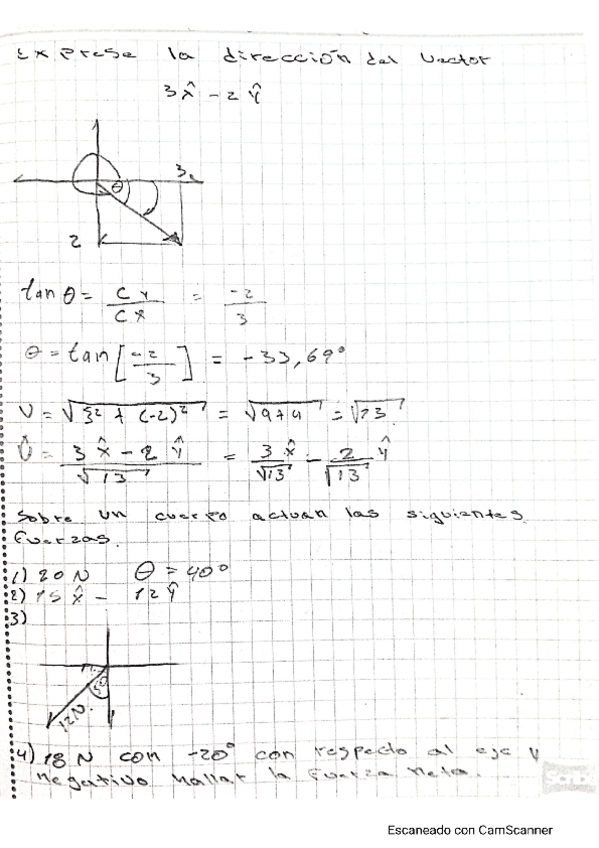 Exprese la dirección del vector
3x̂ - 2ŷ
3
θ
2
tan θ = Cy/Cx = -2/3
θ = tan [-2/3] = -33,69°
V = √3² + (-2)² = √9+4 = √13
Û = 3x̂ - 2ŷ/√13 = 3/√13 x̂ - 2/√13 ŷ
Sobre un cuerpo actuan las siguientes
fuerzas.
1) 20 N θ = 40°
2) 15 x̂ - 12 ŷ
3)
12N.
4) 18 N con -20° con respecto al eje y
negativo hallar la fuerza neta.
Scribe
Escaneado con CamScanner